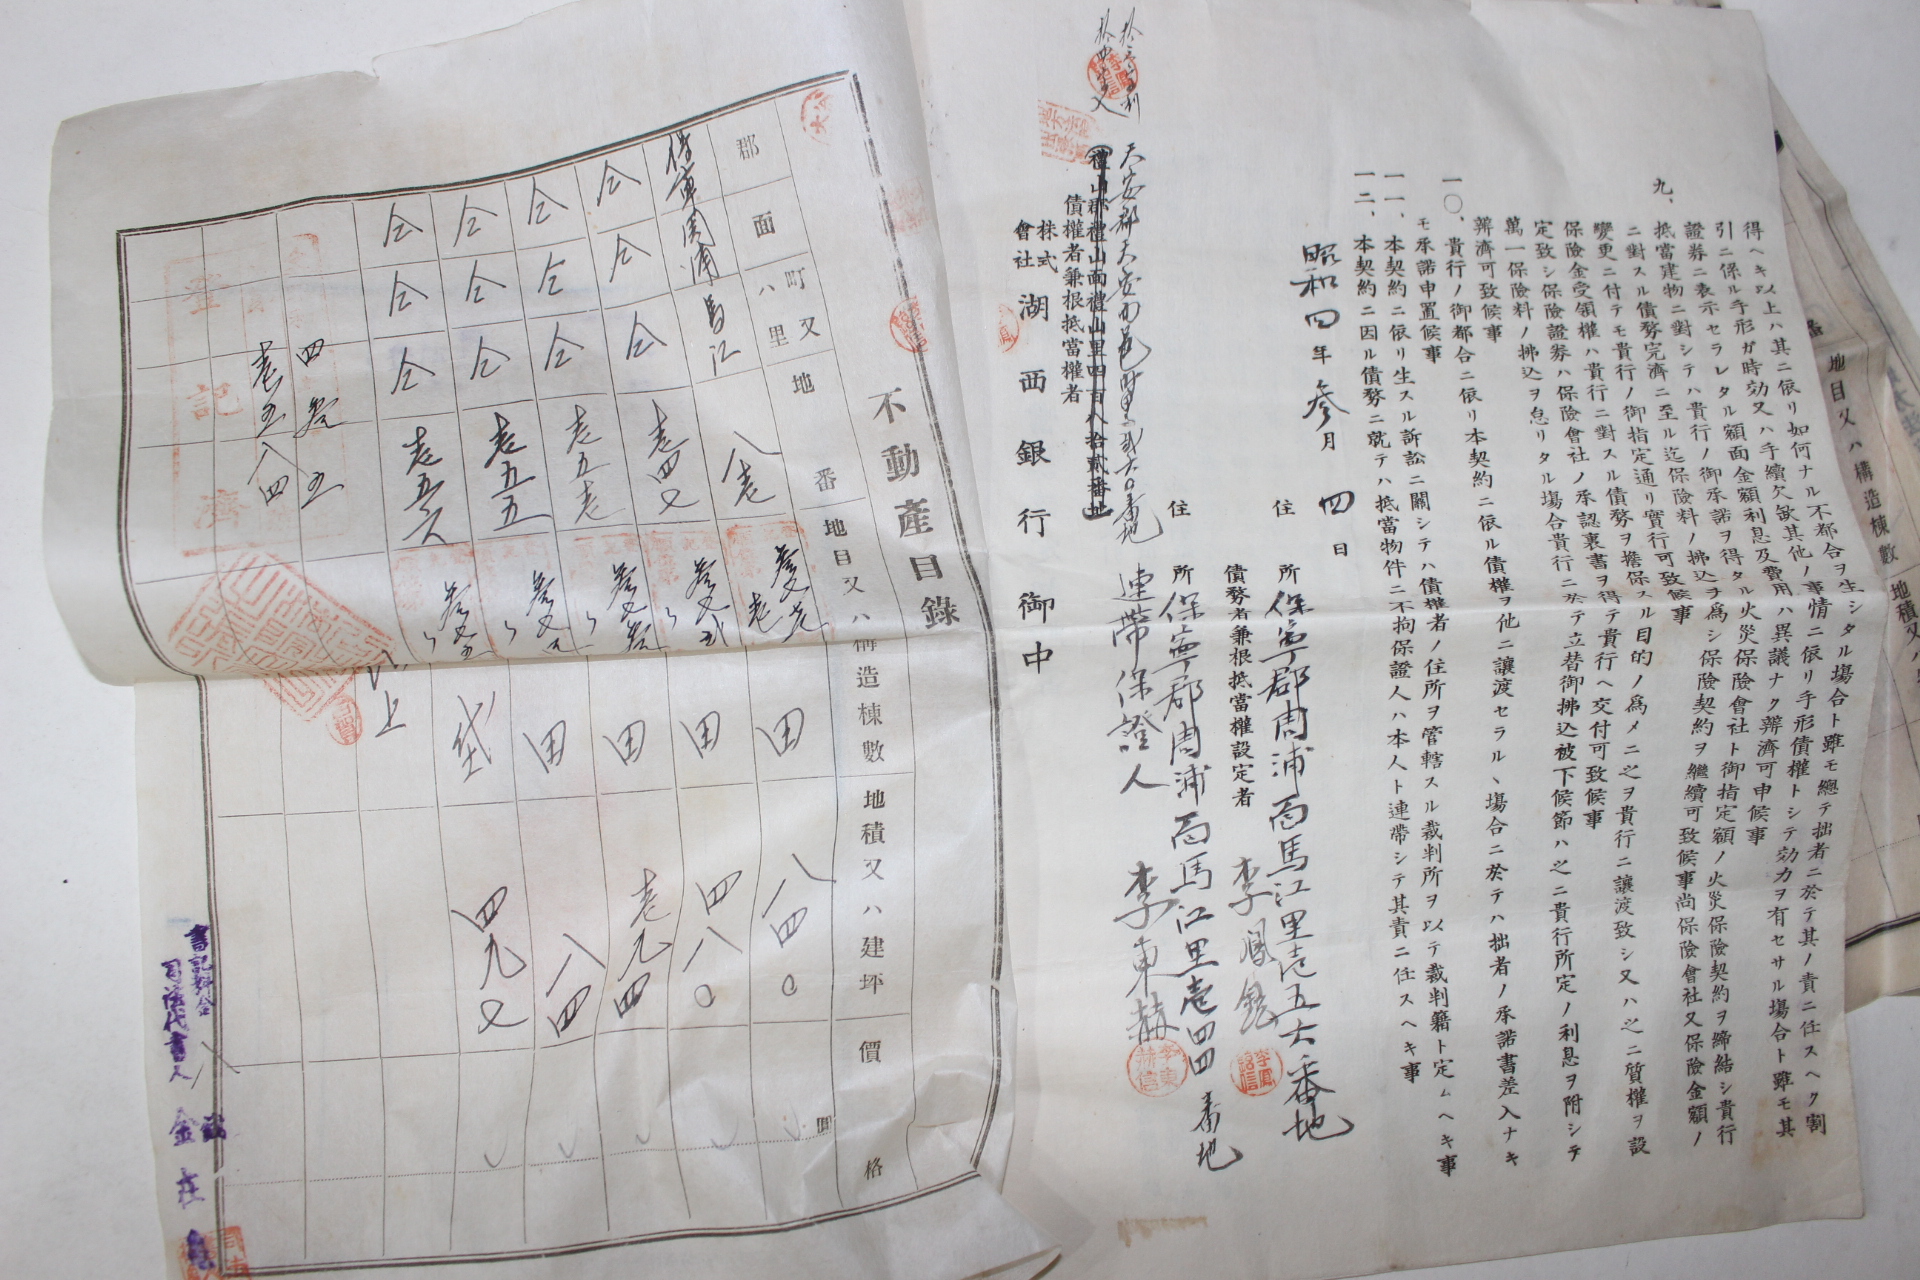 地目又ハ構造棟數
地積又ハ
得ヘキ以上ハ其ニ依リ如何ナル不都合ヲ生シタル場合ト雖モ總テ拙者ニ於テ其ノ責ニ任スヘク割
引ニ係ル手形ガ時効又ハ手續欠缺其他ノ事情ニ依リ手形債權トシテ効力ヲ有セサル場合ト雖モ其
證券ニ表示セラレタル額面金額利息及費用ハ異議ナク辨濟可申候事
九、抵當建物ニ對シテハ貴行ノ御承諾ヲ得タル火災保險會社ト御指定額ノ火災保險契約ヲ締結シ貴行
ニ對スル債務完濟ニ至ル迄保險料ノ拂込ヲ爲シ保險契約ヲ繼續可致候事尚保險會社又保險金額ノ
變更ニ付テモ貴行ノ御指定通リ實行可致候事
保險金受領權ハ貴行ニ對スル債務ヲ擔保スル目的ノ爲メニ之ヲ貴行ニ讓渡致シ又ハ之ニ質權ヲ設
定致シ保險證券ハ保險會社ノ承認裏書ヲ得テ貴行ヘ交付可致候事
萬一保險料ノ拂込ヲ怠リタル場合貴行ニ於テ立替御拂込被下候節ハ之ニ貴行所定ノ利息ヲ附シテ
辨濟可致候事
一〇、貴行ノ御都合ニ依リ本契約ニ依ル債權ヲ他ニ讓渡セラルヽ場合ニ於テハ拙者ノ承諾書差入ナキ
モ承諾申置候事
一一、本契約ニ依リ生スル訴訟ニ關シテハ債權者ノ住所ヲ管轄スル裁判所ヲ以テ裁判籍ト定ムヘキ事
一二、本契約ニ因ル債務ニ就テハ抵當物件ニ不拘保證人ハ本人ト連帶シテ其責ニ任スヘキ事
昭和四年參月四日
住所 保寧郡周浦面馬江里壱五六番地
債務者兼根抵當權設定者 李鳳銘
住所 保寧郡周浦面馬江里壱四四番地
連帶保證人 李東赫
天安郡天安面邑內里弐六〇番地
禮山郡禮山面禮山里四百八拾貳番地
債權者兼根抵當權者
株式會社湖西銀行御中
不動產目錄
郡 面 町又ハ里 地番 地目又ハ構造棟數 地積又ハ建坪 價格
圓
保寧 周浦 馬江 八壱 田 八四〇
仝 仝 仝 壱四七 田 四八〇
仝 仝 仝 壱五壱 田 壱九四
仝 仝 仝 壱五五 田 八四
仝 仝 仝 壱五六 垈 四九七
以上
登記濟
司法代書人 金在